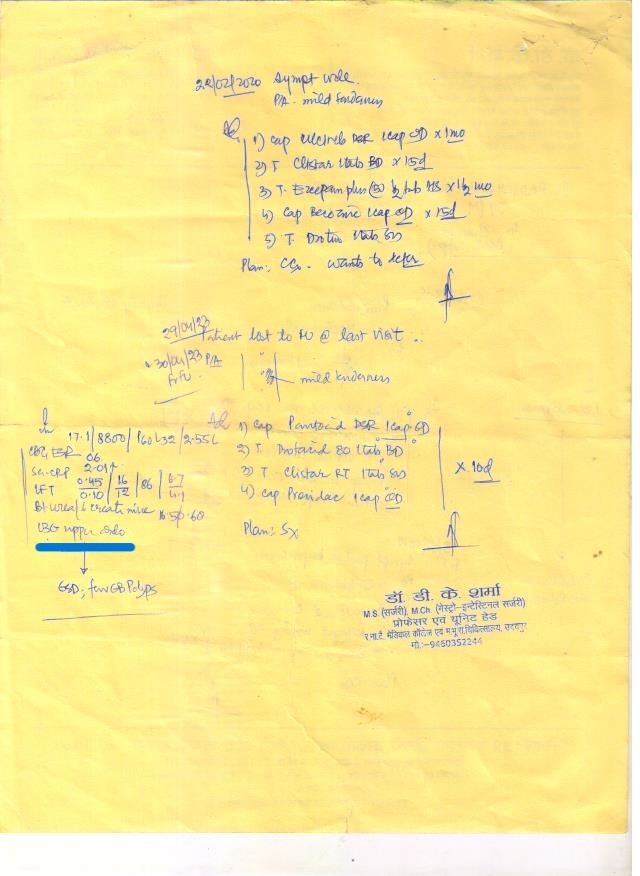 29/02/2020 Sympt wise
P/A - mild tenderness
Adv 1) Cap DSR 1cap OD x 1mo
2) T. Clistar 1tab BD x 15d
3) T. Ezeepam plus 1/2 tab HS x 1/2 mo
4) Cap 1cap OD x 15d
5) T. 1tab SOS
Plan: wants to
29/04/23
Patient lost to FU @ last visit
30/04/23 P/A
mild tenderness
17.1/8800/P60L32/2.55L
06
Se. CRP 2.01
LFT 0.45/0.10 | 16/12 | 86 | 6.7/4.1
Bl urea/S creatinine 16.5/0.60
USG upper abdo
GSD; few GB Polyps
Adv 1) Cap Pantocid DSR 1cap OD
2) T. Drotaind 80 1tab BD
3) T. Clistar RT 1tab SOS
4) Cap Providac 1cap OD
x 10d
Plan: Sx
डॉ. डी. के. शर्मा
M.S. (सर्जरी), M.Ch. (गेस्ट्रो-इन्टेस्टिनल सर्जरी)
प्रोफेसर एवं यूनिट हेड
र.ना.टै. मेडिकल कॉलेज एवं म.भू.रा.चिकित्सालय, उदयपुर
मो.:-9460352244